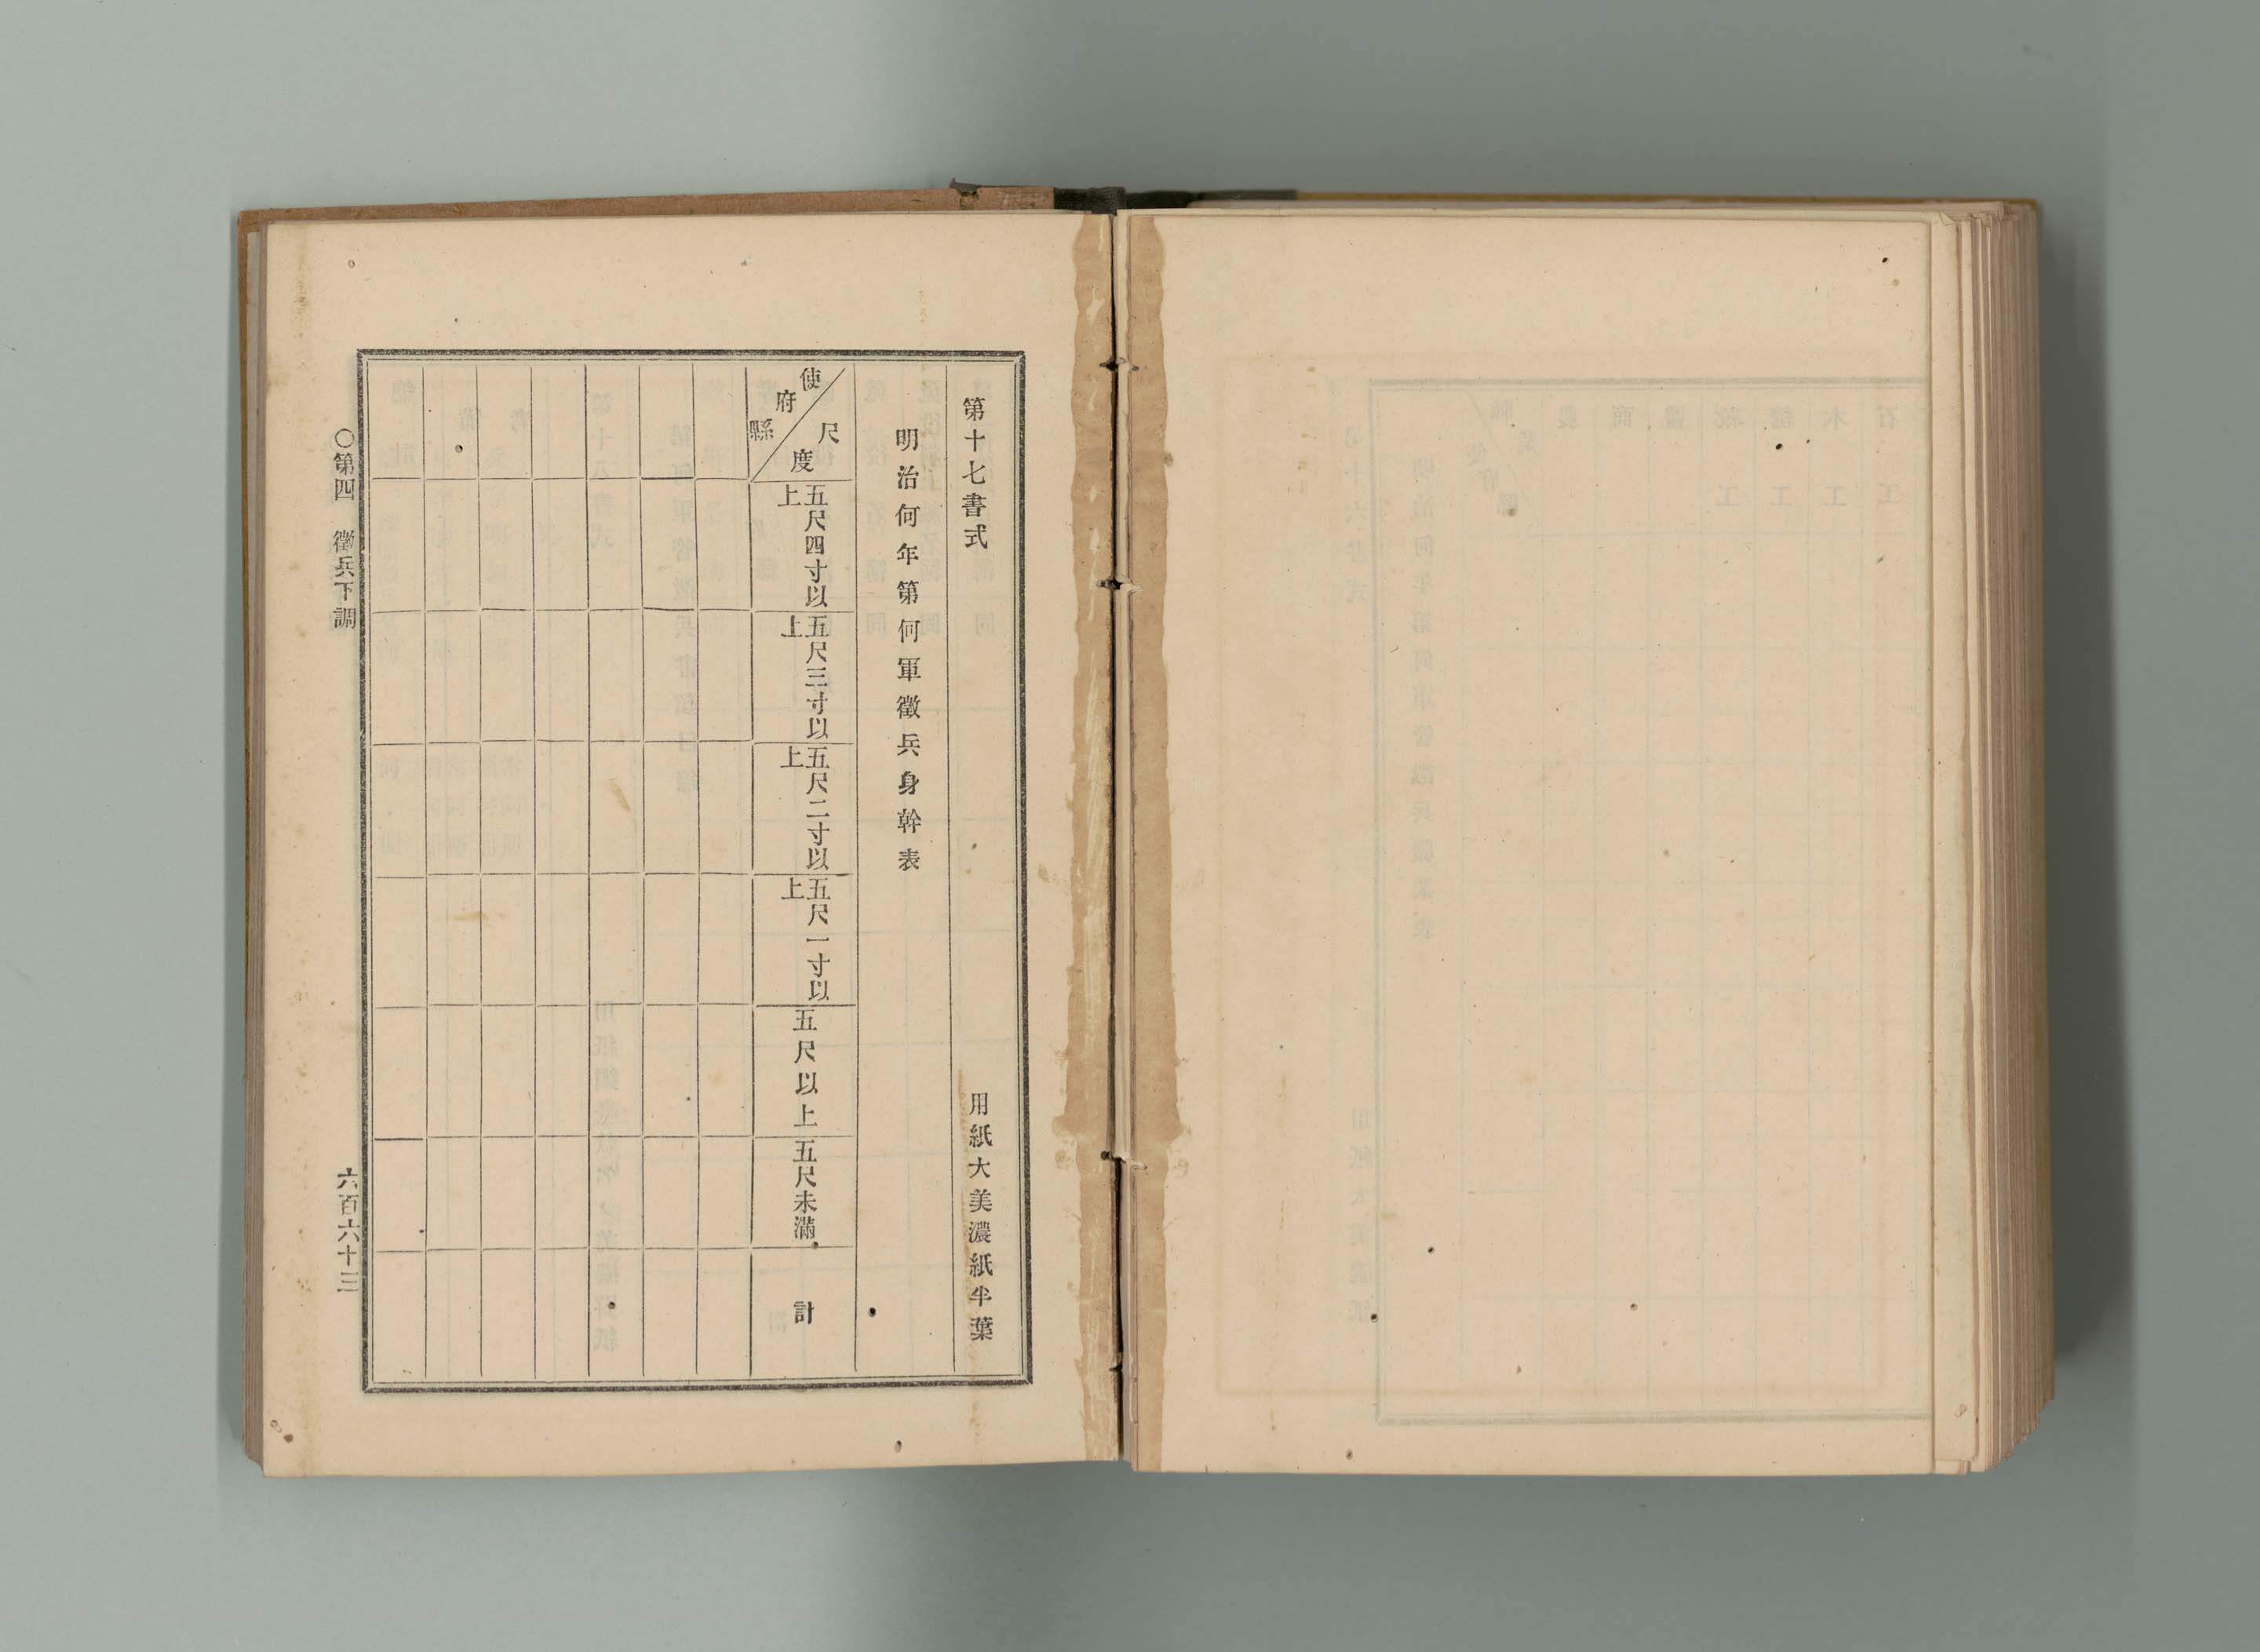 第十七書式
用紙大美濃紙半葉
明治何年第何軍徵兵身幹表
使府縣
尺度
五尺四寸以上
五尺三寸以上
五尺二寸以上
五尺一寸以上
五尺以上
五尺未滿
計
〇第四 徵兵下調
六百六十三